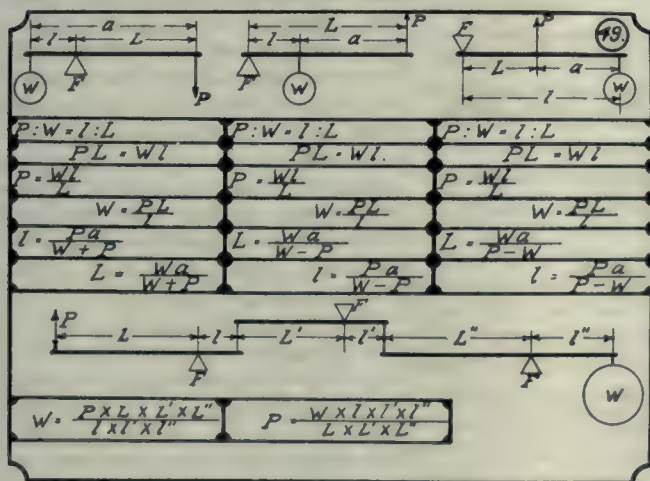 a L P 49.
l L l a F P
F F L a
W P W l W
P:W = l:L P:W = l:L P:W = l:L
PL = Wl PL = Wl. PL = Wl
P = Wl/L P = Wl/L P = Wl/L
W = PL/l W = PL/l W = PL/l
l = Pa/W+P L = Wa/W-P L = Wa/P-W
L = Wa/W+P l = Pa/W-P l = Pa/P-W
P L l L' F l' L'' l''
F F W
W = P×L×L'×L''/l×l'×l'' P = W×l×l'×l''/L×L'×L''